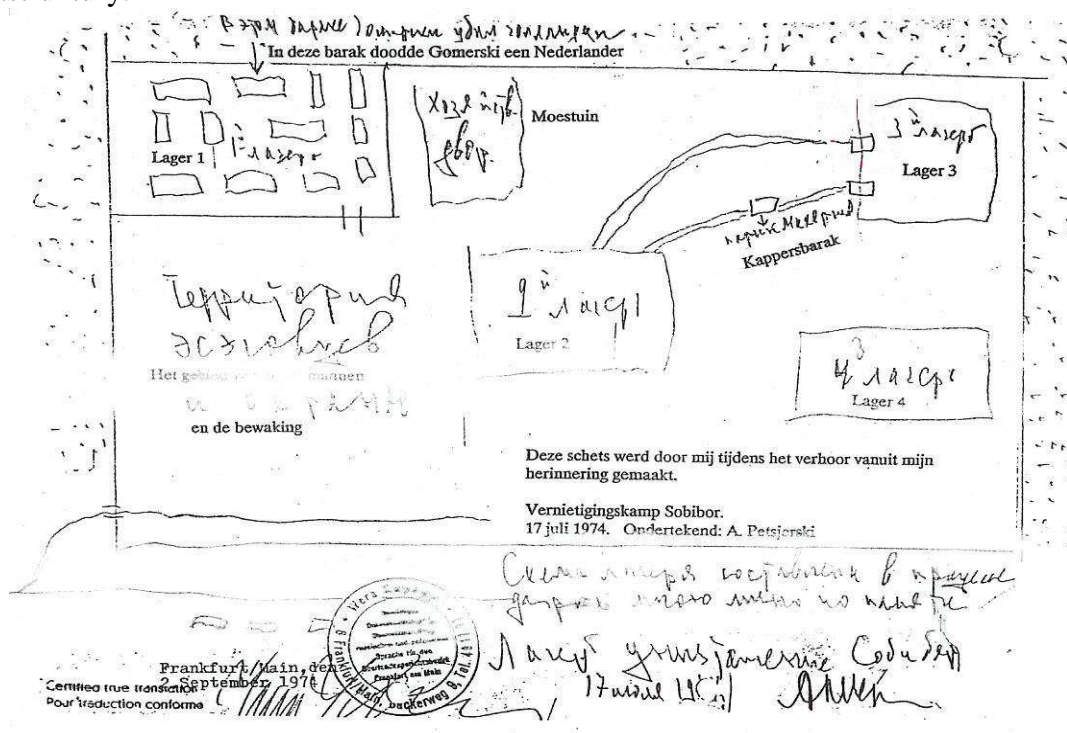 В этом бараке убил
In deze barak doodde Gomerski een Nederlander
Хозяйств.
двор.
Moestuin
1й лагерь
Lager 1
3й лагерь
Lager 3
парикмахерская
Kappersbarak
Территория
эсэсовцев
Het mannen
и охраны
en de bewaking
2й лагерь
Lager 2
4 лагерь
Lager 4
Deze schets werd door mij tijdens het verhoor vanuit mijn
herinnering gemaakt.
Vernietigingskamp Sobibor.
17 juli 1974. Ondertekend: A. Petsjerski
Схема лагеря составлена в процессе
мною лично по памяти
Лагерь Собибор
17 июля
Frankfurt/Main, den
2. September 1974
Certified true translation
Pour traduction conforme
Vera
6 Frankfurt/Main, 9, Tel.